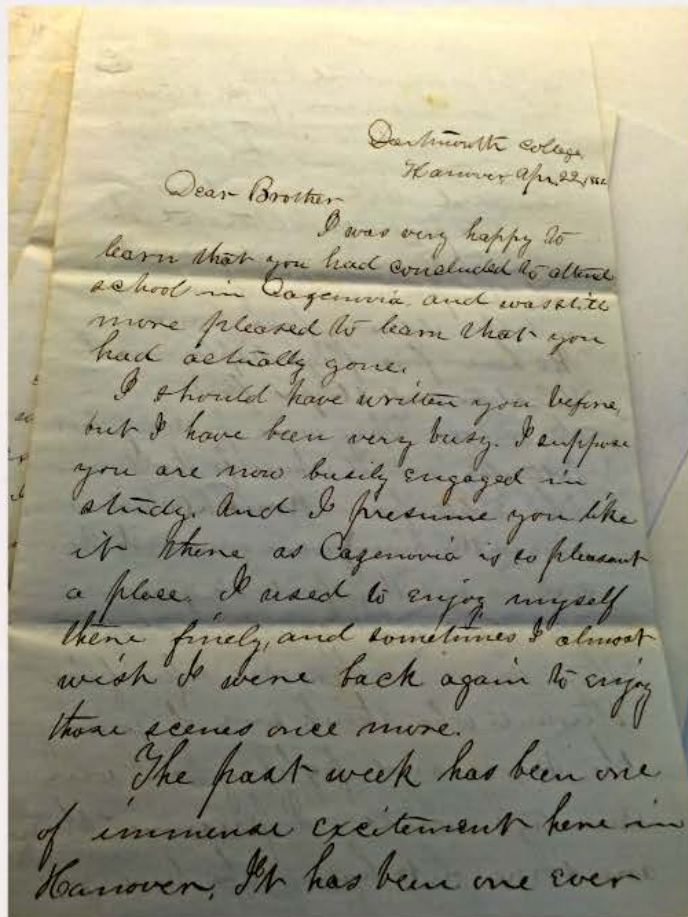 Dartmouth College,
Hanover, Apr. 22,
Dear Brother
I was very happy to
learn that you had concluded to attend
school in Cazenovia and was still
more pleased to learn that you
had actually gone.
I should have written you before,
but I have been very busy. I suppose
you are now busily engaged in
study. And I presume you like
it there as Cazenovia is so pleasant
a place. I used to enjoy myself
there finely, and sometimes I almost
wish I were back again to enjoy
those scenes once more.
The past week has been one
of immense excitement here in
Hanover. It has been one ever